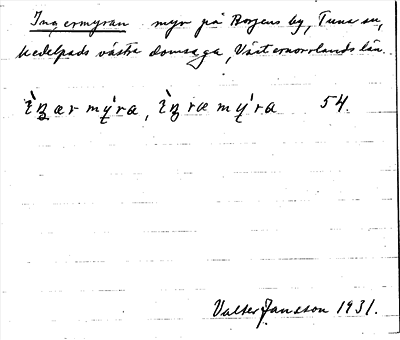 Ingermyran myr på Borgens by, Tuna sn,
Medelpads västra domsaga, Västernorrlands län.
ìŋærmý̨ra, ìŋræmý̨ra 54.
Valter Jansson 1931.